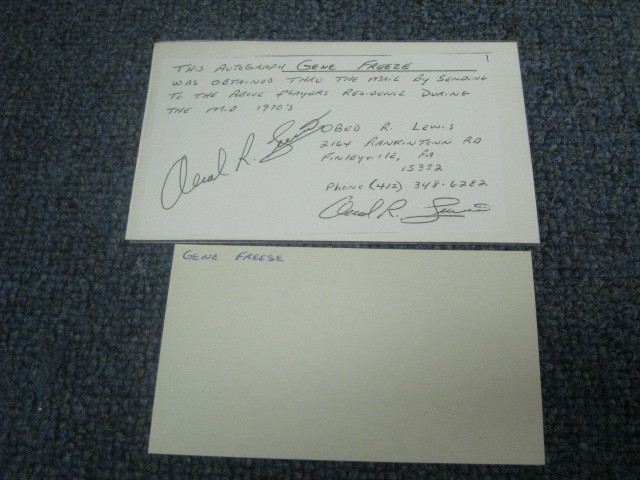 1
THIS AUTOGRAPH GENE FREEZE
WAS OBTAINED THRU THE MAIL BY SENDING
TO THE ABOVE PLAYERS RESIDENCE DURING
THE MID 1970'S
OBED R. LEWIS
2164 RANKINTOWN RD
FINLEYVILLE, PA.
15332
PHONE (412) 348-6282
Obed R. Lewis
Obed R. Lewis
GENE FREESE